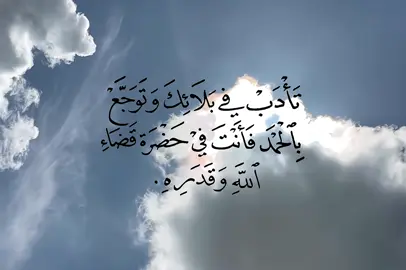 تَأَدَبْ فِي بَلَائِكَ وَتَوَجَّعْ
بِالْحَمْدَ فَأَنْتَ فِيْ حَضْرَة قَضَاءِ
اللهِ وَقَدَرِهِ.